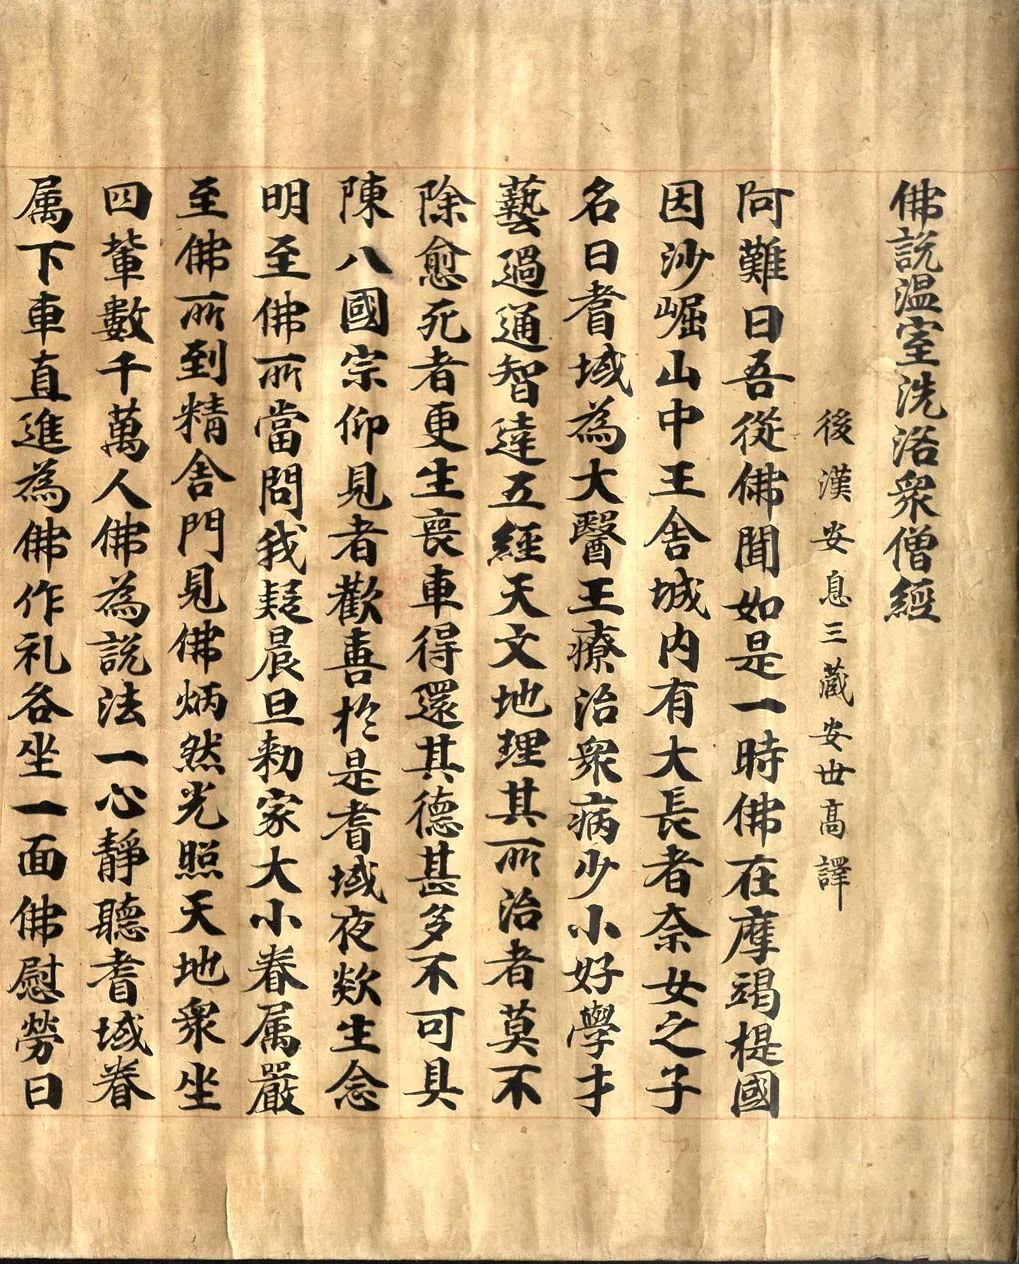 佛說温室洗浴衆僧經
後漢安息三藏安世高譯
阿難曰吾從佛聞如是一時佛在摩竭提國
因沙崛山中王舍城内有大長者奈女之子
名曰耆域為大醫王療治衆病少小好學才
藝過通智達五經天文地理其所治者莫不
除愈死者更生喪車得還其德甚多不可具
陳八國宗仰見者歡喜於是耆域夜欻生念
明至佛所當問我疑晨旦勑家大小眷属嚴
至佛所到精舍門見佛炳然光照天地衆坐
四輩數千萬人佛為說法一心靜聽耆域眷
属下車直進為佛作礼各坐一面佛慰勞曰